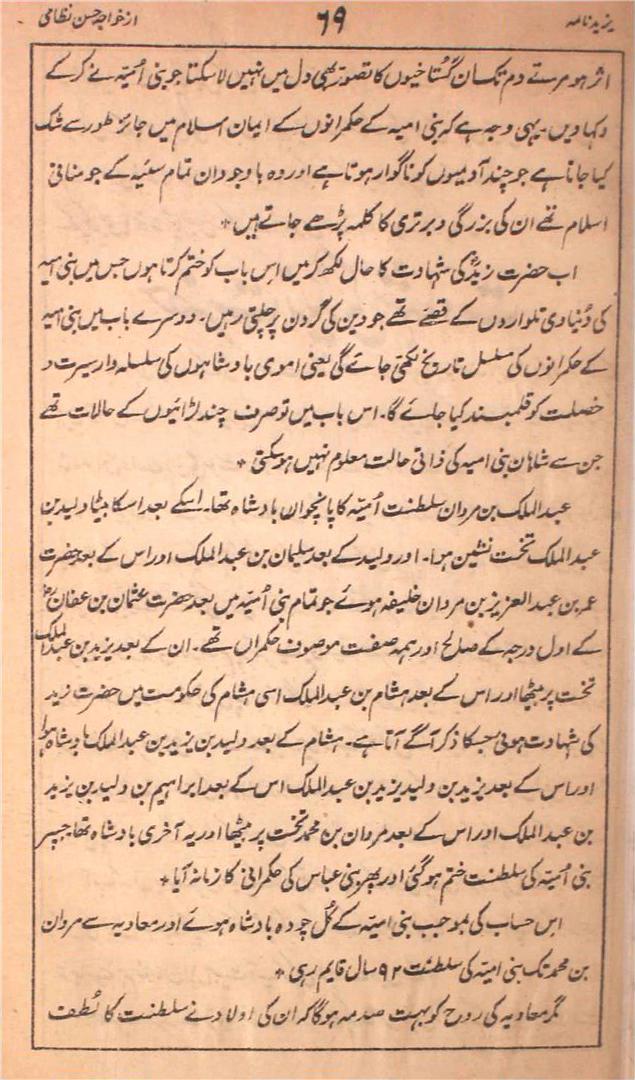 یزیدنامہ ۶۹ از خواجہ حسن نظامی
اثر ہو مرتے دم تک ان گستاخیوں کا تصور بھی دل میں نہیں لا سکتا جو بنی اُمیّہ نے کر کے
دکہا دیں۔ یہی وجہ ہے کہ بنی امیہ کے حکمرانوں کے ایمان اسلام میں جائز طور سے شک
کیا جاتا ہے جو چند آدمیوں کو ناگوار ہوتا ہے اور وہ باوجود ان تمام سئیہ کے جو منافی
اسلام تھے ان کی بزرگی و برتری کا کلمہ پڑھے جاتے ہیں *
اب حضرت زیدؓ کی شہادت کا حال لکھ کر میں اس باب کو ختم کرتا ہوں جس میں بنی امیہ
کی دُنیاوی تلواروں کے قصّے تھے جو دین کی گردن پر چلتی رہیں۔ دوسرے باب میں بنی امیہ
کے حکمرانوں کی مسلسل تاریخ لکھی جائے گی یعنی اموی بادشاہوں کی سلسلہ وار سیرت و
خصلت کو قلمبند کیا جائے گا۔ اس باب میں تو صرف چند لڑائیوں کے حالات تھے
جن سے شاہان بنی امیہ کی ذاتی حالت معلوم نہیں ہو سکتی *
عبد الملک بن مروان سلطنت اُمیّہ کا پانچواں بادشاہ تھا۔ اسکے بعد اسکا بیٹا ولید بن
عبد الملک تخت نشین ہوا۔ اور ولید کے بعد سلیمان بن عبد الملک اور اس کے بعد حضرت
عمر بن عبد العزیز بن مروان خلیفہ ہوئے جو تمام بنی اُمیّہ میں بعد حضرت عثمان بن عفانؓ
کے اول درجہ کے صالح اور ہمہ صفت موصوف حکمراں تھے۔ ان کے بعد یزید بن عبد الملک
تخت پر بیٹھا اور اس کے بعد ہشام بن عبد الملک اسی ہشام کی حکومت میں حضرت زید
کی شہادت ہوئی جسکا ذکر آگے آتا ہے۔ ہشام کے بعد ولید بن یزید بن عبد الملک بادشاہ ہوا
اور اس کے بعد یزید بن ولید یزید بن عبد الملک اس کے بعد ابراہیم بن ولید بن یزید
بن عبد الملک اور اس کے بعد مروان بن محمد تخت پر بیٹھا اور یہ آخری بادشاہ تھا جسپر
بنی اُمیّہ کی سلطنت ختم ہو گئی اور پھر بنی عباس کی حکمرانی کا زمانہ آیا *
اس حساب کی بموجب بنی امیّہ کے کُل چودہ بادشاہ ہوئے اور معاویہ سے مروان
بن محمد تک بنی امیّہ کی سلطنت ۹۲ سال قایم رہی *
مگر معاویہ کی روح کو بہت صدمہ ہوگا کہ ان کی اولاد نے سلطنت کا لُطف